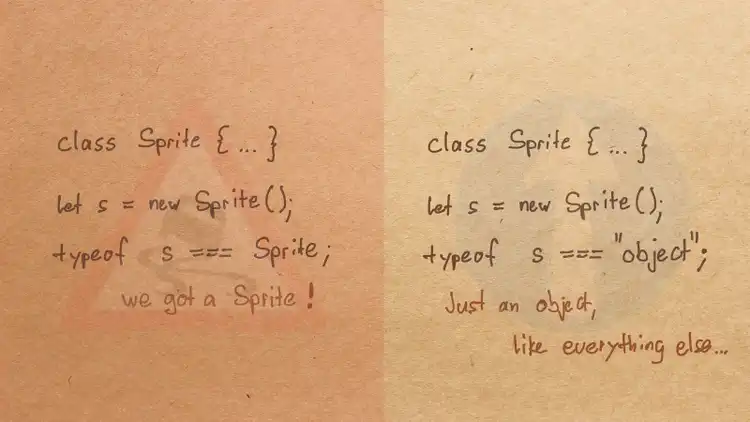 class Sprite { ... }
let s = new Sprite();
typeof s === Sprite;
we got a Sprite !
class Sprite { ... }
let s = new Sprite();
typeof s === "object";
Just an object,
like everything else...